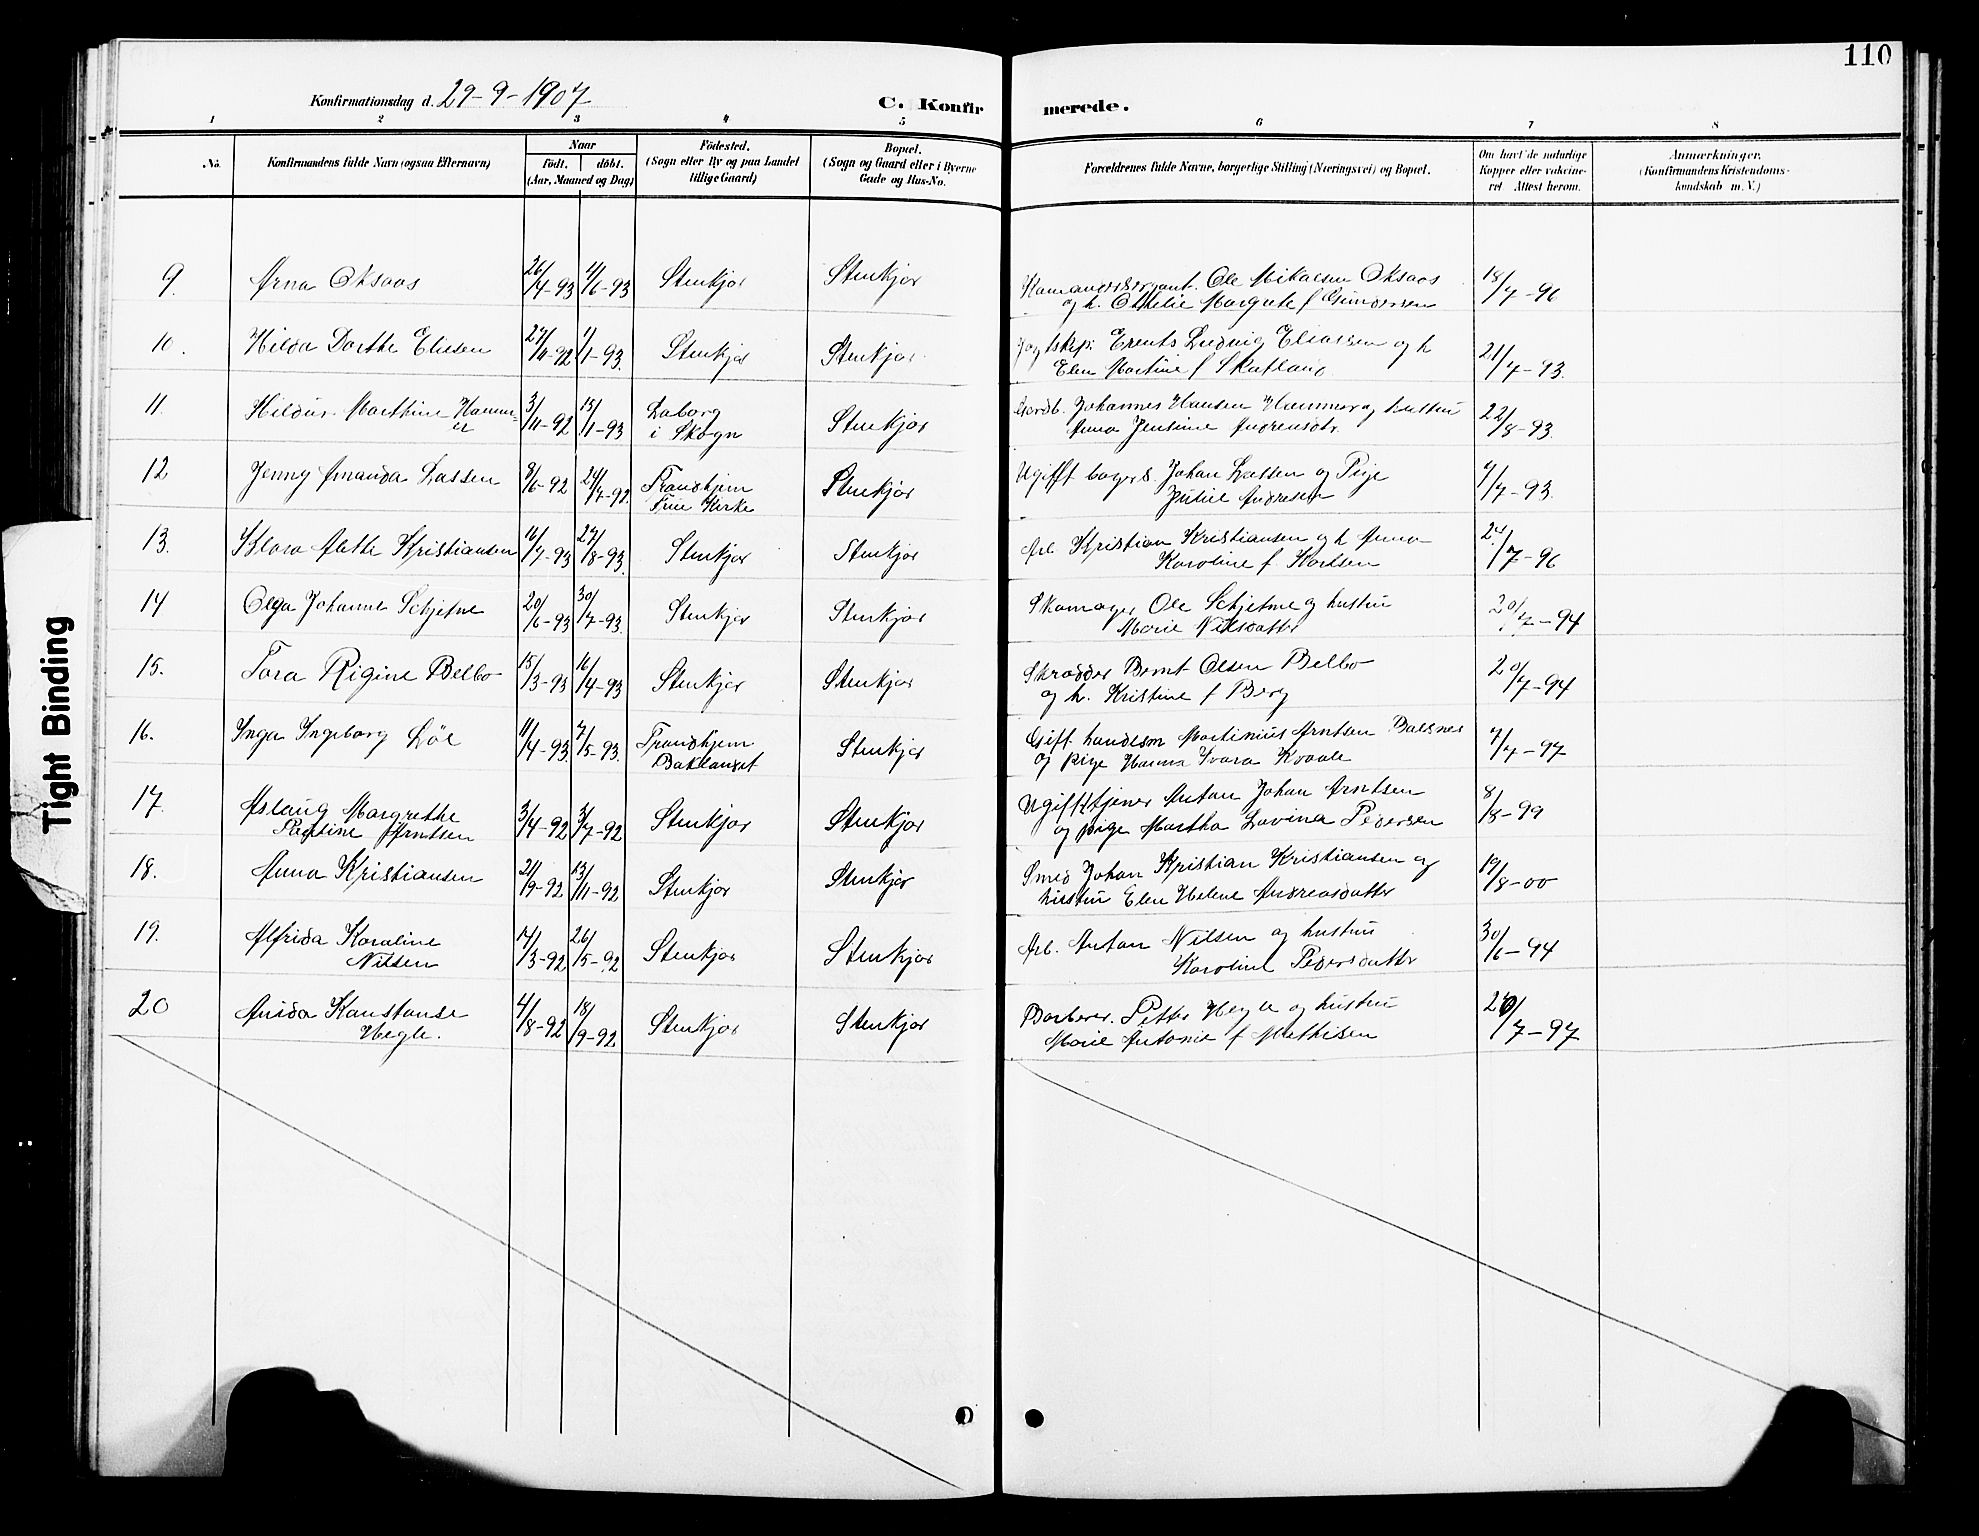 110
Konfirmationsdag d. 29-9-1907
C. Konfirmerede.
1 2 3 4 5 6 7 8
No. Konfirmandens fulde Navn (ogsaa Efternavn) Naar födt. döbt. (Aar, Maaned og Dag) Födested. (Sogn eller By og paa Landet tillige Gaard) Bopæl. (Sogn og Gaard eller i Byerne Gade og Hus-No. Forældrenes fulde Navne, borgerlige Stilling (Næringsvei) og Bopæl. Om havt de naturlige Kopper eller vakcineret Attest herom. Anmærkninger. (Konfirmandens Kristendomskundskab m. V.)
9. Arna Oksaas 26/4-93 4/6-93 Stenkjær Stenkjær Ole Mikalsen Oksaas 18/7-96
og h. Othelie Margrete f Gundersen
10. Hilda Dorthe Eliesen 27/11-92 1/1-93. Stenkjær Stenkjær. Jagtskip. Erents Ludvig Eliassen og h 21/7-93.
Elen Martine f Skatland
11. Hildur Marthine Hammer 3/11-92 15/1-93 Laborg Stenkjær Gardb. Johannes Hansen Hammer og hustru 22/8-93.
i Skogn Anna Jensine Andreasdtr
12 Jenny Amanda Lassen 8/6-92 24/7-92. Trondhjem Stenkjær Ugift bagers. Johan Lassen og Pige 4/7-93.
Frue Kirke Julie Andresen
13. Klara Alette Kristiansen 16/7-93 27/8-93. Stenkjær Stenkjær Arb. Kristian Kristiansen og h Anna 24/7-96
Karoline f. Karlsen
14 Olga Johanne Schjetne 20/6-93 30/7-93. Stenkjær Stenkjær Skomager Ole Schjetne og hustru 20/7-94
Marie Nilsdatter
15. Tora Rigine Belbo 15/3-93 16/4-93 Stenkjær Stenkjær Skrædder Bernt Olsen Belbo 20/7-94
og h. Kristine f Berg
16. Inga Ingeborg Löe 11/4-93. 7/5-93. Trondhjem Stenkjær Gift handesm Martinius Arntsen Balsnes 7/7-97
Baklandet og pige Hanna Ivara Kvaale
17. Aslaug Margrethe 3/4-92 3/7-92 Stenkjær Stenkjær Ugift tjener Anton Johan Arntsen 8/8-99
Arntsen og pige Martha Lovina Pedersen
18. Anna Kristiansen 21/9-92 13/11-92 Stenkjær Stenkjær Smed Johan Kristian Kristiansen og 19/8-00
hustru Elen Helene Andreasdatter
19. Alfrida Karoline 14/3-92 26/5-92 Stenkjær Stenkjær Arb. Anton Nilsen og hustru 30/6-94
Nilsen Karoline Pedersdatter
20 Arida Konstanse 4/8-92 18/9-92 Stenkjær Stenkjær Barberer. Petter Hegle og hustru /7-97
Hegle. Marie Antonie f Mathisen
Tight Binding